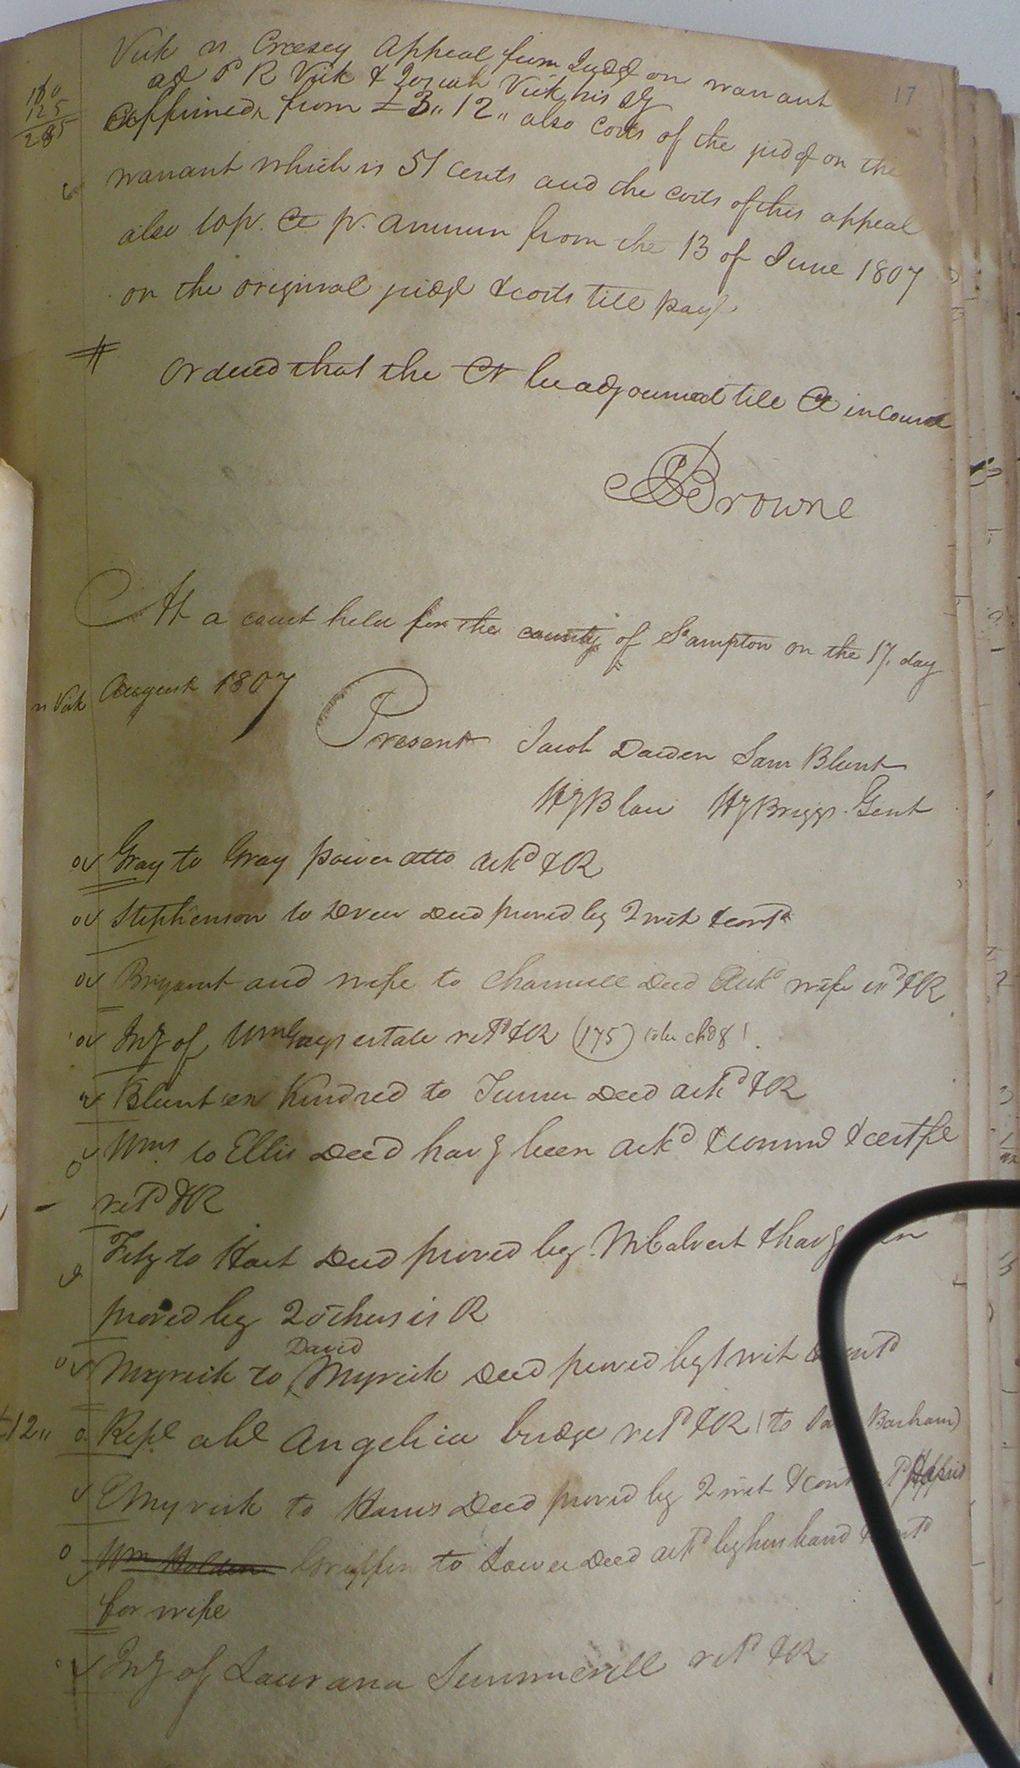 17
Vick vs Cresey Appeal from Judgt on warrant
agt P R Vick & Josiah Vick his sy
160
125
285
affirmed from £3,,12,, also costs of the judgt on the
warrant which is 51 cents and the costs of this appeal
also 10 pr. Ct pr. annum from the 13 of June 1807
on the original judgt & costs till pay
Ordered that the Ct be adjourned till Ct in course
Browne
At a court held for the county of S.ampton on the 17. day
vs Vick August 1807
Present Jacob Darden Sam Blunt
HJ Blow HJ Briggs Gent
ov Gray to Gray power atto Ackd & R
ov Stephenson to Drew Deed proved by 2 wit & contd
ov Bryant and wife to Deed Ackd wife exd & R
ov Inv of Wm Grays estate retd & R (175)
v Blunt ex Kindred to Turner Deed ackd & R
ov Wms to Ellis Deed havg been ackd & commn & certfe
retd & R
Fitz to Hart Deed proved by. M Calvert & havg
proved by 2 others is R
David
ov Myrick to Myrick Deed proved by 1 wit & contd
12,, Angelica bridge retd & R (to Barham)
v E Myrick to Harris Deed proved by 2 wit
o Wm Holden Griffin to Lawe Deed ackd by husband
for wife
v Inv of Laurana Summerell retd & R